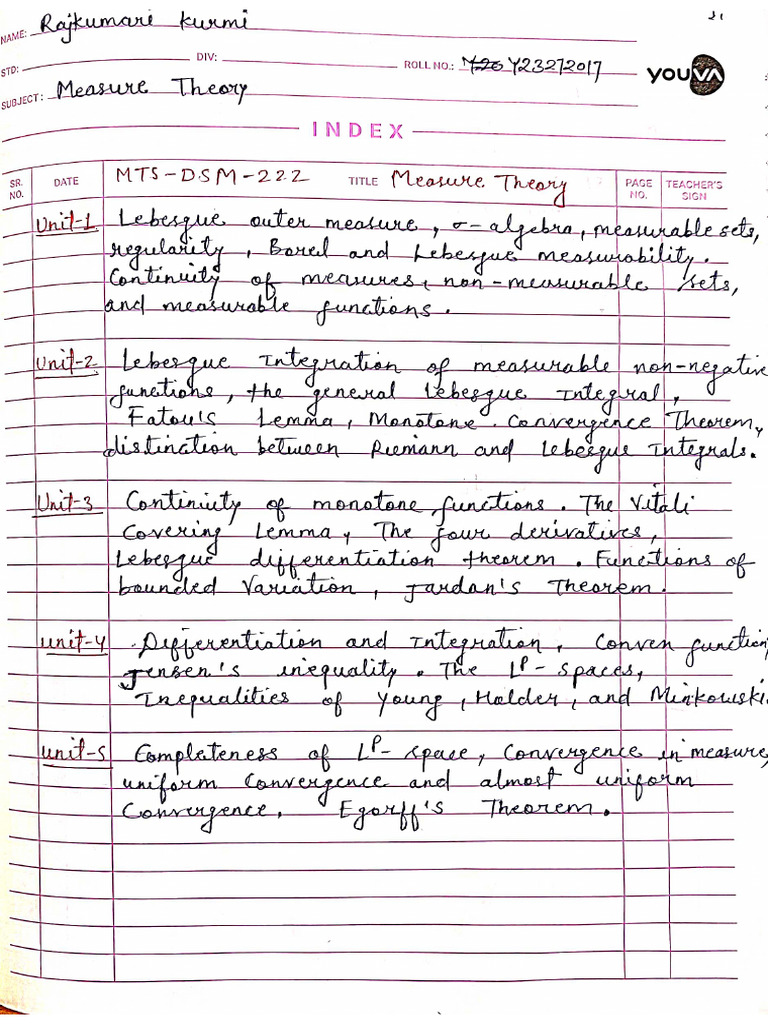 NAME: Rajkumari Kurmi
STD: DIV: ROLL NO.: Y23272017
YOUVA
SUBJECT: Measure Theory
INDEX
SR. NO. DATE MTS-DSM-222 TITLE Measure Theory PAGE NO. TEACHER'S SIGN
Unit-1 Lebesgue outer measure, σ-algebra, measurable sets,
regularity, Borel and Lebesgue measurability.
Continuity of measures, non-measurable sets,
and measurable functions.
Unit-2 Lebesgue Integration of measurable non-negative
functions, the general Lebesgue Integral,
Fatou's Lemma, Monotone Convergence Theorem,
distination between Riemann and Lebesgue Integrals.
Unit-3 Continuity of monotone functions. The Vitali
Covering Lemma, The four derivatives,
Lebesgue differentiation theorem. Functions of
bounded Variation, Jardan's Theorem.
unit-4 Differentiation and Integration, Conven function,
Jensen's inequality. The Lᵖ-spaces,
Inequalities of Young, Holder, and Minkowski.
unit-5 Completeness of Lᵖ-space, Convergence in measure,
uniform convergence and almost uniform
Convergence, Egorff's Theorem.